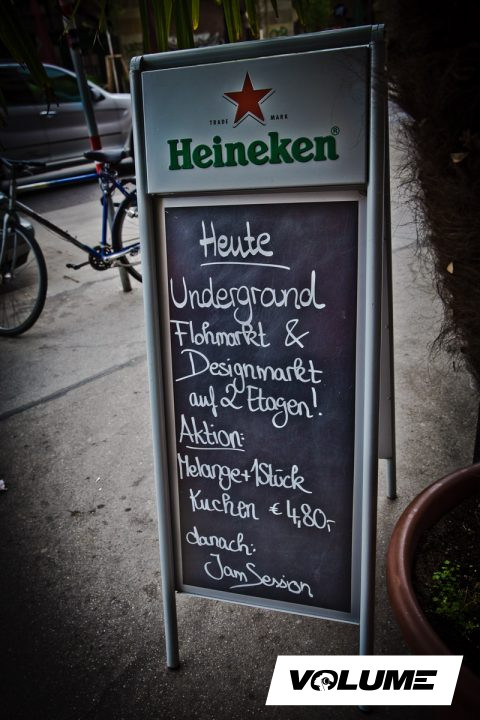 TRADE MARK
Heineken®
Heute
Undergrand
Flohmarkt &
Designmarkt
auf 2 Etagen!
Aktion:
Melange+1Stück
Kuchen € 4,80,-
danach:
Jam Session
VOLUME